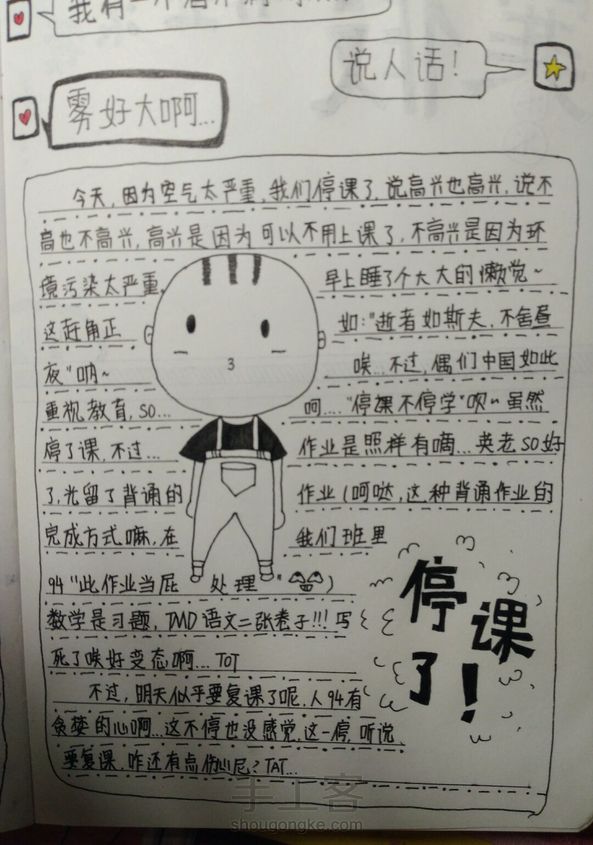 我有一个
说人话！
雾好大啊...
今天，因为空气太严重，我们停课了，说高兴也高兴，说不
高也不高兴，高兴是因为可以不用上课了，不高兴是因为环
境污染太严重， 早上睡了个大大的懒觉~
这赶角正 如："逝者如斯夫，不舍昼
夜"呐~ 唉...不过，偶们中国如此
重视教育，so... 呵...."停课不停学"呗~虽然
停了课，不过... 作业是照样有嘀...英老so好
了，光留了背诵的 作业（呵哒，这种背诵作业的
完成方式嘛，在 我们班里
94"此作业当屁 处理")
数学是习题，TMD语文二张卷子!!!写
死了唉好变态啊...TOT
不过，明天似乎要复课了呢，人94有
贪婪的心啊...这不停也没感觉，这一停，听说
要复课，咋还有点伤心尼？TAT...
停课
了！
手工客
shougongke.com